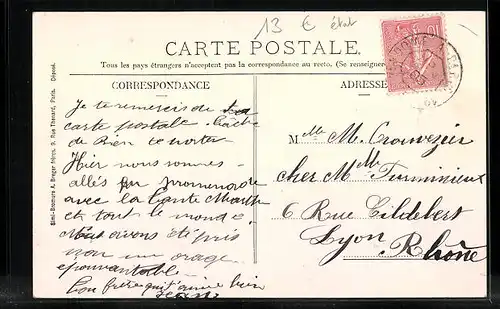 13 € état
CARTE POSTALE.
Tous les pays étrangers n'acceptent pas la correspondance au recto. (Se renseigner
CORRESPONDANCE
ADRESSE
Simi-Bromure A. Breger frères, 9, Rue Thénard, Paris. Déposé.
Je te remercis de ta
carte postale. Tache
de Bien te porter
Hier nous sommes
allés promenade
avec la Tante Marthe
et tout le monde.
Nous avons été pris
un orage
epouvantable.
Ton frère qui t'aime bien
Jean
Mlle M.
cher Mme
6 Rue Gildebert
Lyon
Rhône